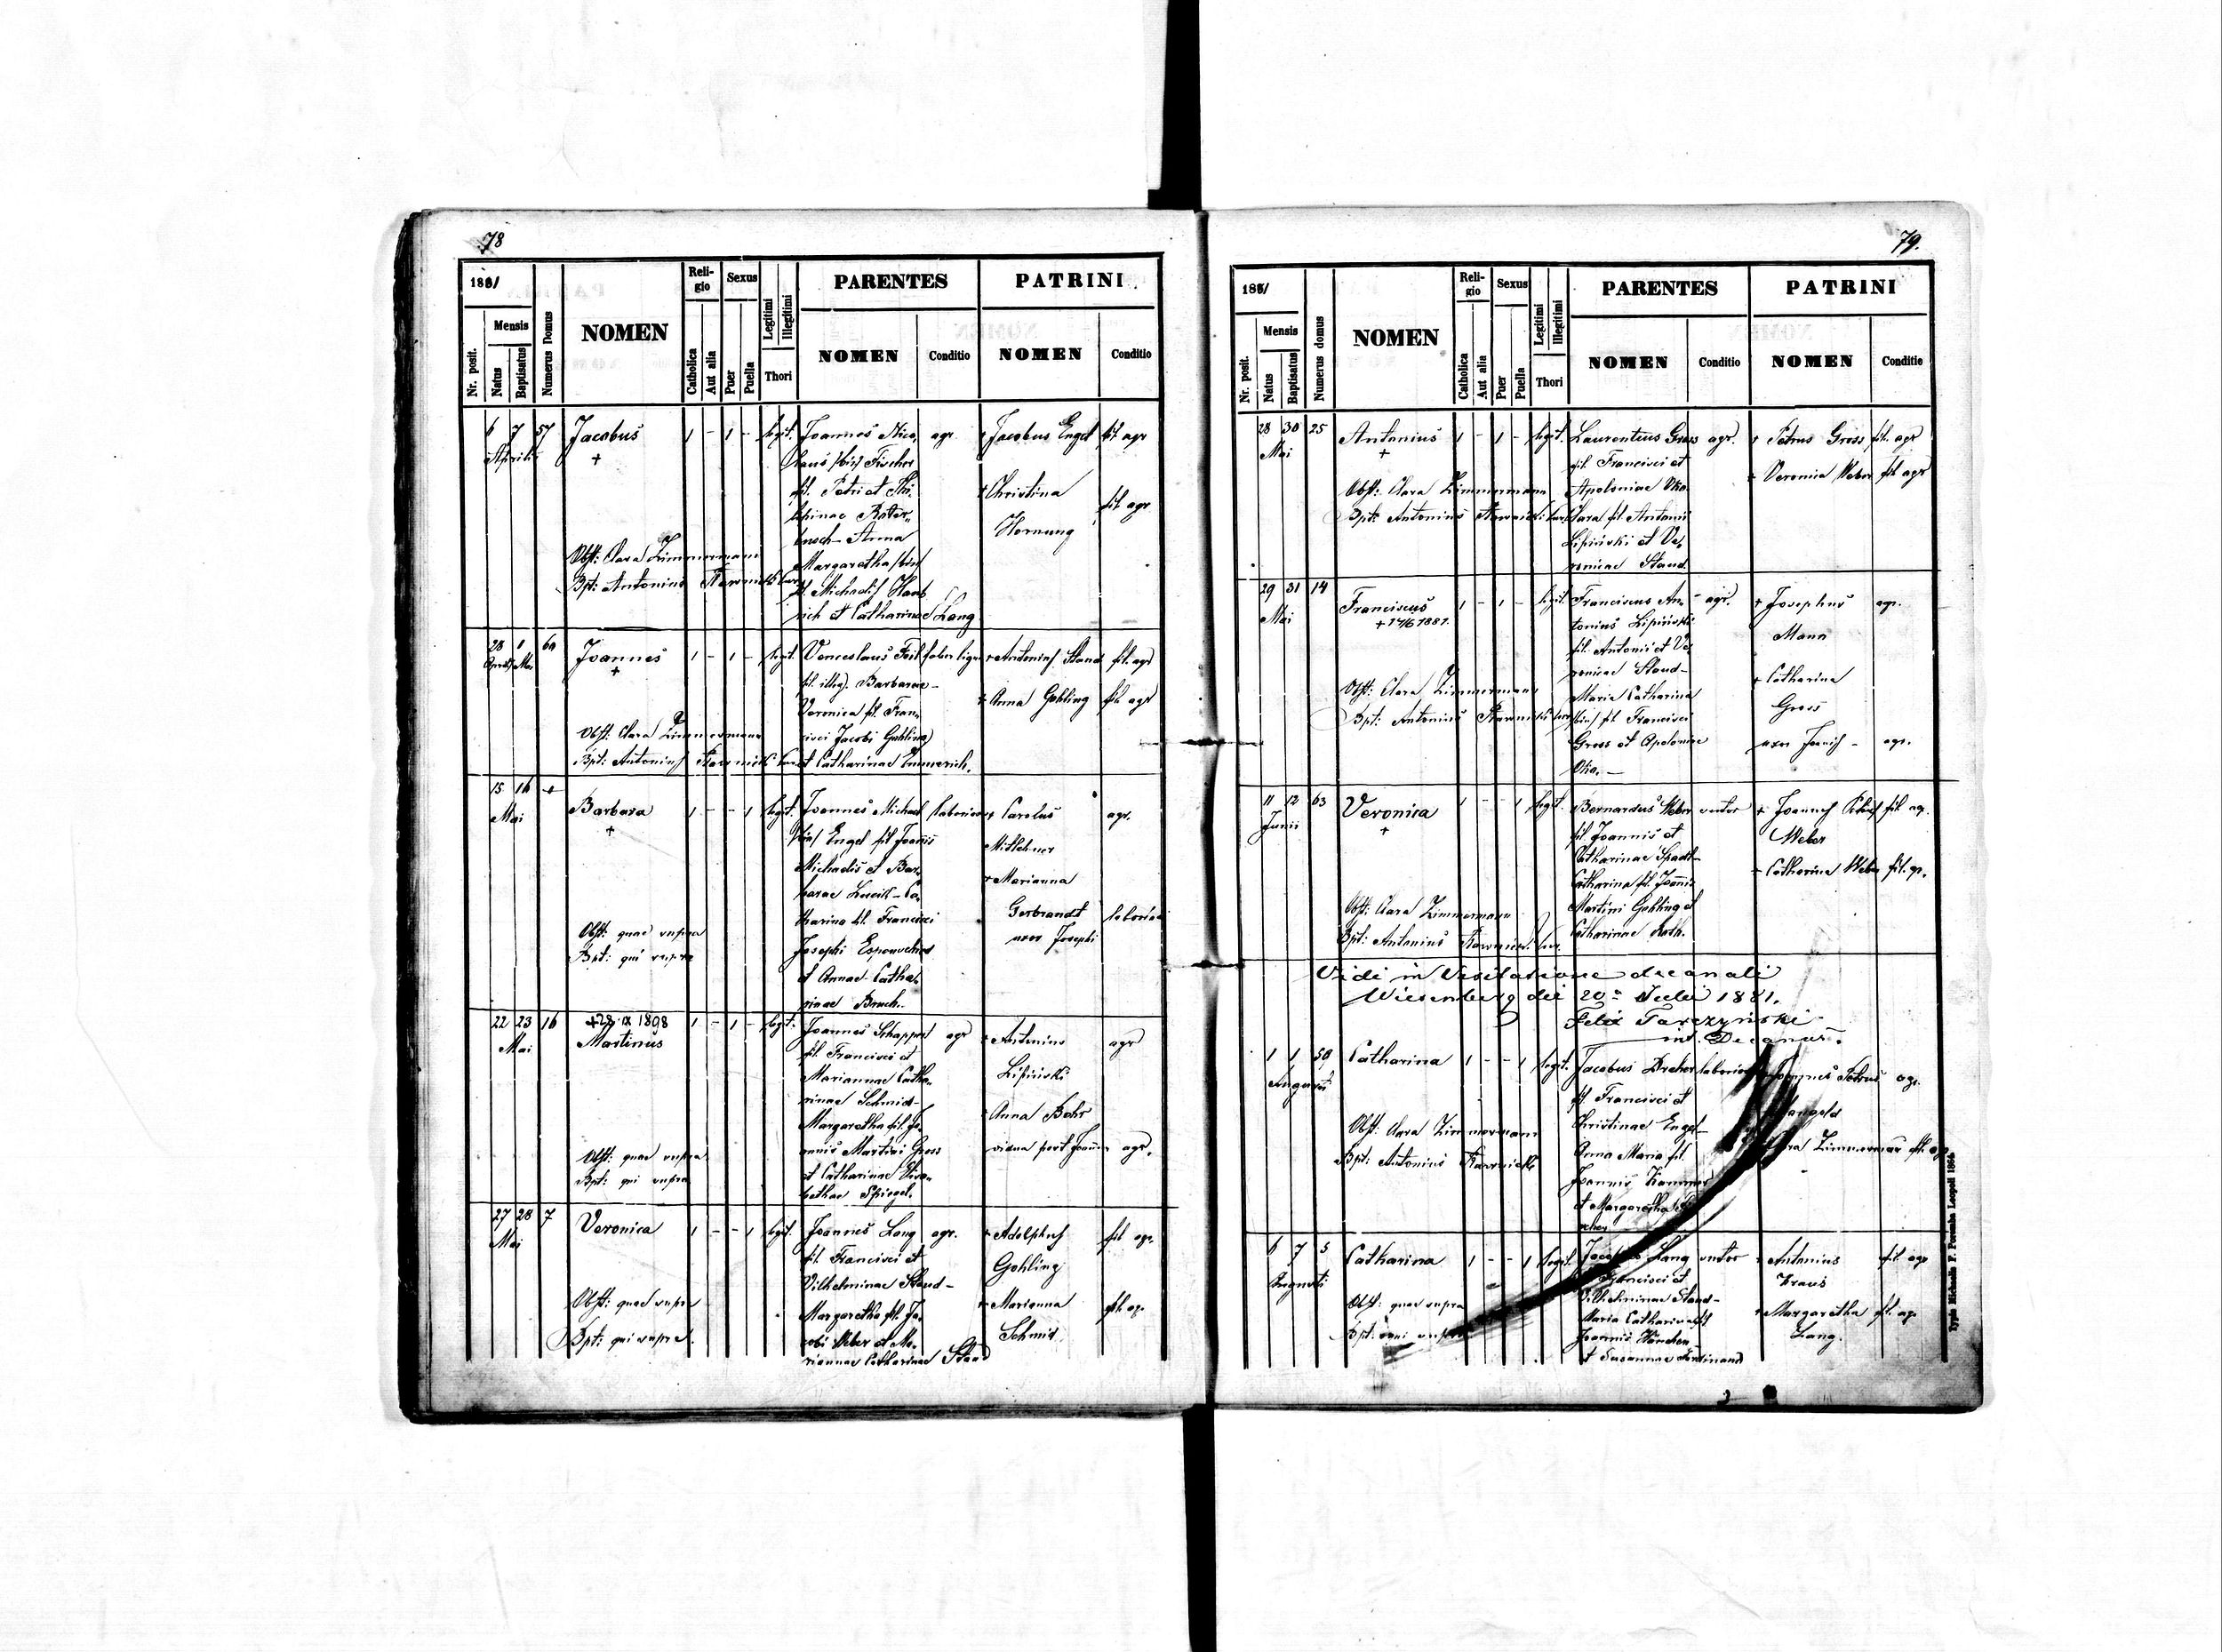 78
1881
Nr. posit.
Mensis
Natus
Baptisatus
Numerus Domus
NOMEN
Reli-
gio
Catholica
Aut alia
Sexus
Puer
Puella
Legitimi
Illegitimi
Thori
PARENTES
NOMEN
Conditio
PATRINI
NOMEN
Conditio
6 7 57
Aprilis
Jacobus
+
1 - 1 - legit.
Joannes Nico,
laus /bin/ Fischer
fil. Petri et Phi-
lipinae
Anna
Margaretha /bin/
fil. Michaelis
et Catharinae Lang
agr
Jacobus Engel fil agr
+ Christina
Hornung
fil agr
Obst: Clara Zimmermann
Bpt: Antonius
28 1
Mai
Joannes
+
1 - 1 - legit.
Venceslaus
fil. illeg. Barbarae -
Veronica fil. Fran-
cisci Jacobi Gohling
et Catharinae Emmerich.
faber lign
+ Antonius Staud fil. agr
+ Anna Gohling fil. agr
Obst: Clara Zimmermann
Bpt: Antonius
15 16
Mai
Barbara
+
1 - - 1 legit.
Joannes Michael
/bin/ Engel fil Joannis
Michaelis et Bar-
barae - Ca-
tharina fil. Francisci
Josephi
et Annae Catha-
rinae Bruch.
+ Carolus
Mitlehner
agr.
+ Marianna
Gerbrandt
uxor Josephi
Obst: quae supra
Bpt: qui supra
22 23 16
Mai
+ 28 IX 1898
Martinus
1 - 1 - legit.
Joannes Schappert agr
fil. Francisci et
Mariannae Catha-
rinae Schmid -
Margaretha fil. Jo-
annis Martini Gross
et Catharinae Elisa-
bethae Spiegel.
Antonius
Lipiński
agr
Anna Bohr
vidua post Joann agr.
Obst: quae supra
Bpt: qui supra
27 28 7
Mai
Veronica
1 - - 1 legit.
Joannes Lang agr.
fil. Francisci et
Vilhelminae Staud -
Margaretha fil. Ja-
cobi Weber et Ma-
riannae Catharinae Staud
+ Adolphus
Gohling
fil agr.
+ Marianna
Schmid
fil. agr.
Obst: quae supra
Bpt: qui supra.
79.
1881
Nr. posit.
Mensis
Natus
Baptisatus
Numerus domus
NOMEN
Reli-
gio
Catholica
Aut alia
Sexus
Puer
Puella
Legitimi
Illegitimi
Thori
PARENTES
NOMEN
Conditio
PATRINI
NOMEN
Conditie
28 30 25
Mai
Antonius
+
1 - 1 - legit.
Laurentius Gross agr.
fil. Francisci et
Apoloniae
Clara fil Antonii
Lipiński et Ve-
ronicae Staud.
+ Petrus Gross fil. agr
+ Veronica Weber fil agr
Obst: Clara Zimmermann
Bpt: Antonius
29 31 14
Mai
Franciscus
+ 17/6 1881.
1 - 1 - legit.
Franciscus An-
tonius Lipiński
fil. Antonii et Ve-
ronicae Staud -
Maria Catharina
/bin/ fil Francisci
Gross et Apoloniae
agr.
+ Josephus
Mann
agr.
+ Catharina
Gross
uxor agr.
Obst: Clara Zimmermann
Bpt: Antonius
11 12 63
Junii
Veronica
+
1 - - 1 legit.
Bernardus Weber sutor
fil Joannis et
Catharinae
Catharina fil. Joannis
Martini Gohling et
Catharinae Roth.
+ Joannes
Weber
fil. ag.
+ Catharina Weber fil. agr.
Obst: Clara Zimmermann
Bpt: Antonius
Vidi in Visitatione decanali
Wiesenberg die 20ª Julii 1881.
Felix Tarczyński
Decanus.
1 1 50
Augusti
Catharina
1 - - 1 legit.
Jacobus Dreher
fil. Francisci et
Christinae Engel -
Anna Maria fil.
Joannis Kammer
et Margaretha
Joannes Petrus agr.
Clara Zimmermann fil. agr
Obst: Clara Zimmermann
Bpt: Antonius
6 7 5
Augusti
Catharina
1 - - 1 legit.
Lang sutor
Francisci et
Vilhelminae Staud -
Maria Catharina fil
Joannis
et Susannae Ferdinand
Antonius
Kraus
fil. agr
+ Margaretha
Lang.
fil. agr.
Obst: quae supra
Bpt: qui supra
Typis Michaelis F. Poremba Leopoli 1864